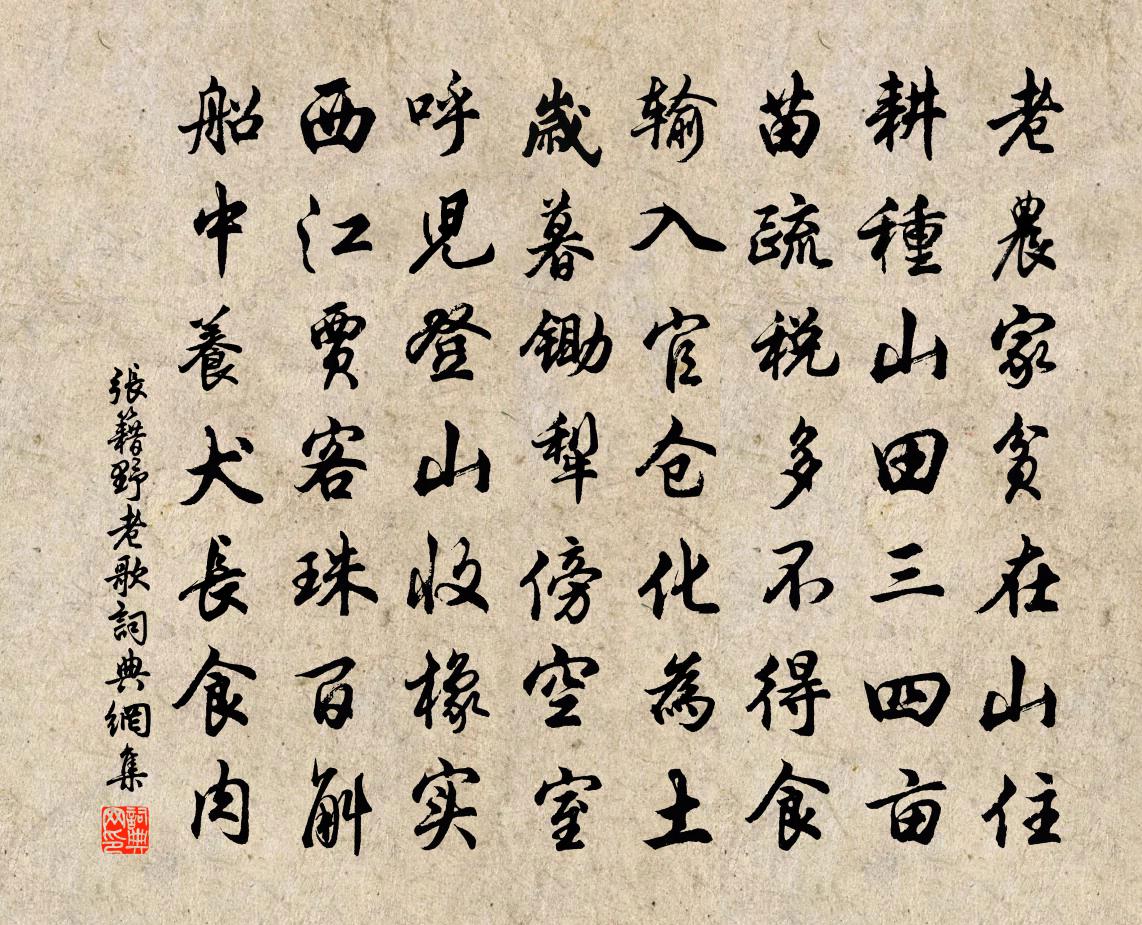 老農家貧在山住
耕種山田三四亩
苗疏税多不得食
输入官仓化為土
歲暮锄犁傍空室
呼児登山收橡实
西江賈客珠百斛
船中養犬長食肉
張籍野老歌詞典網集
詞典网印